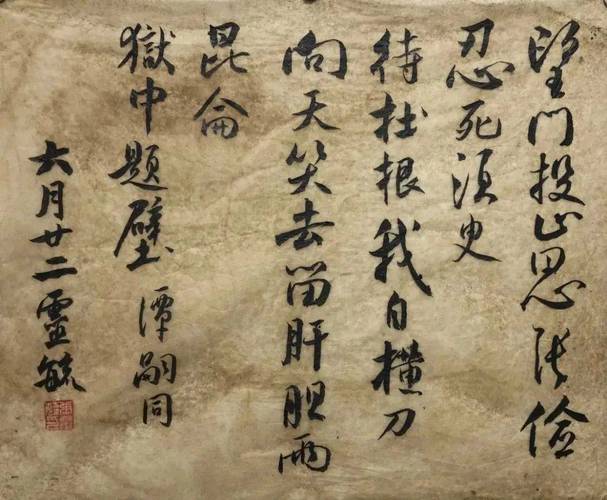 望门投止思张俭
忍死须史
待杜根我自横刀
向天笑去留肝胆两
昆侖
獄中題壁 谭嗣同
六月廿二靈毓